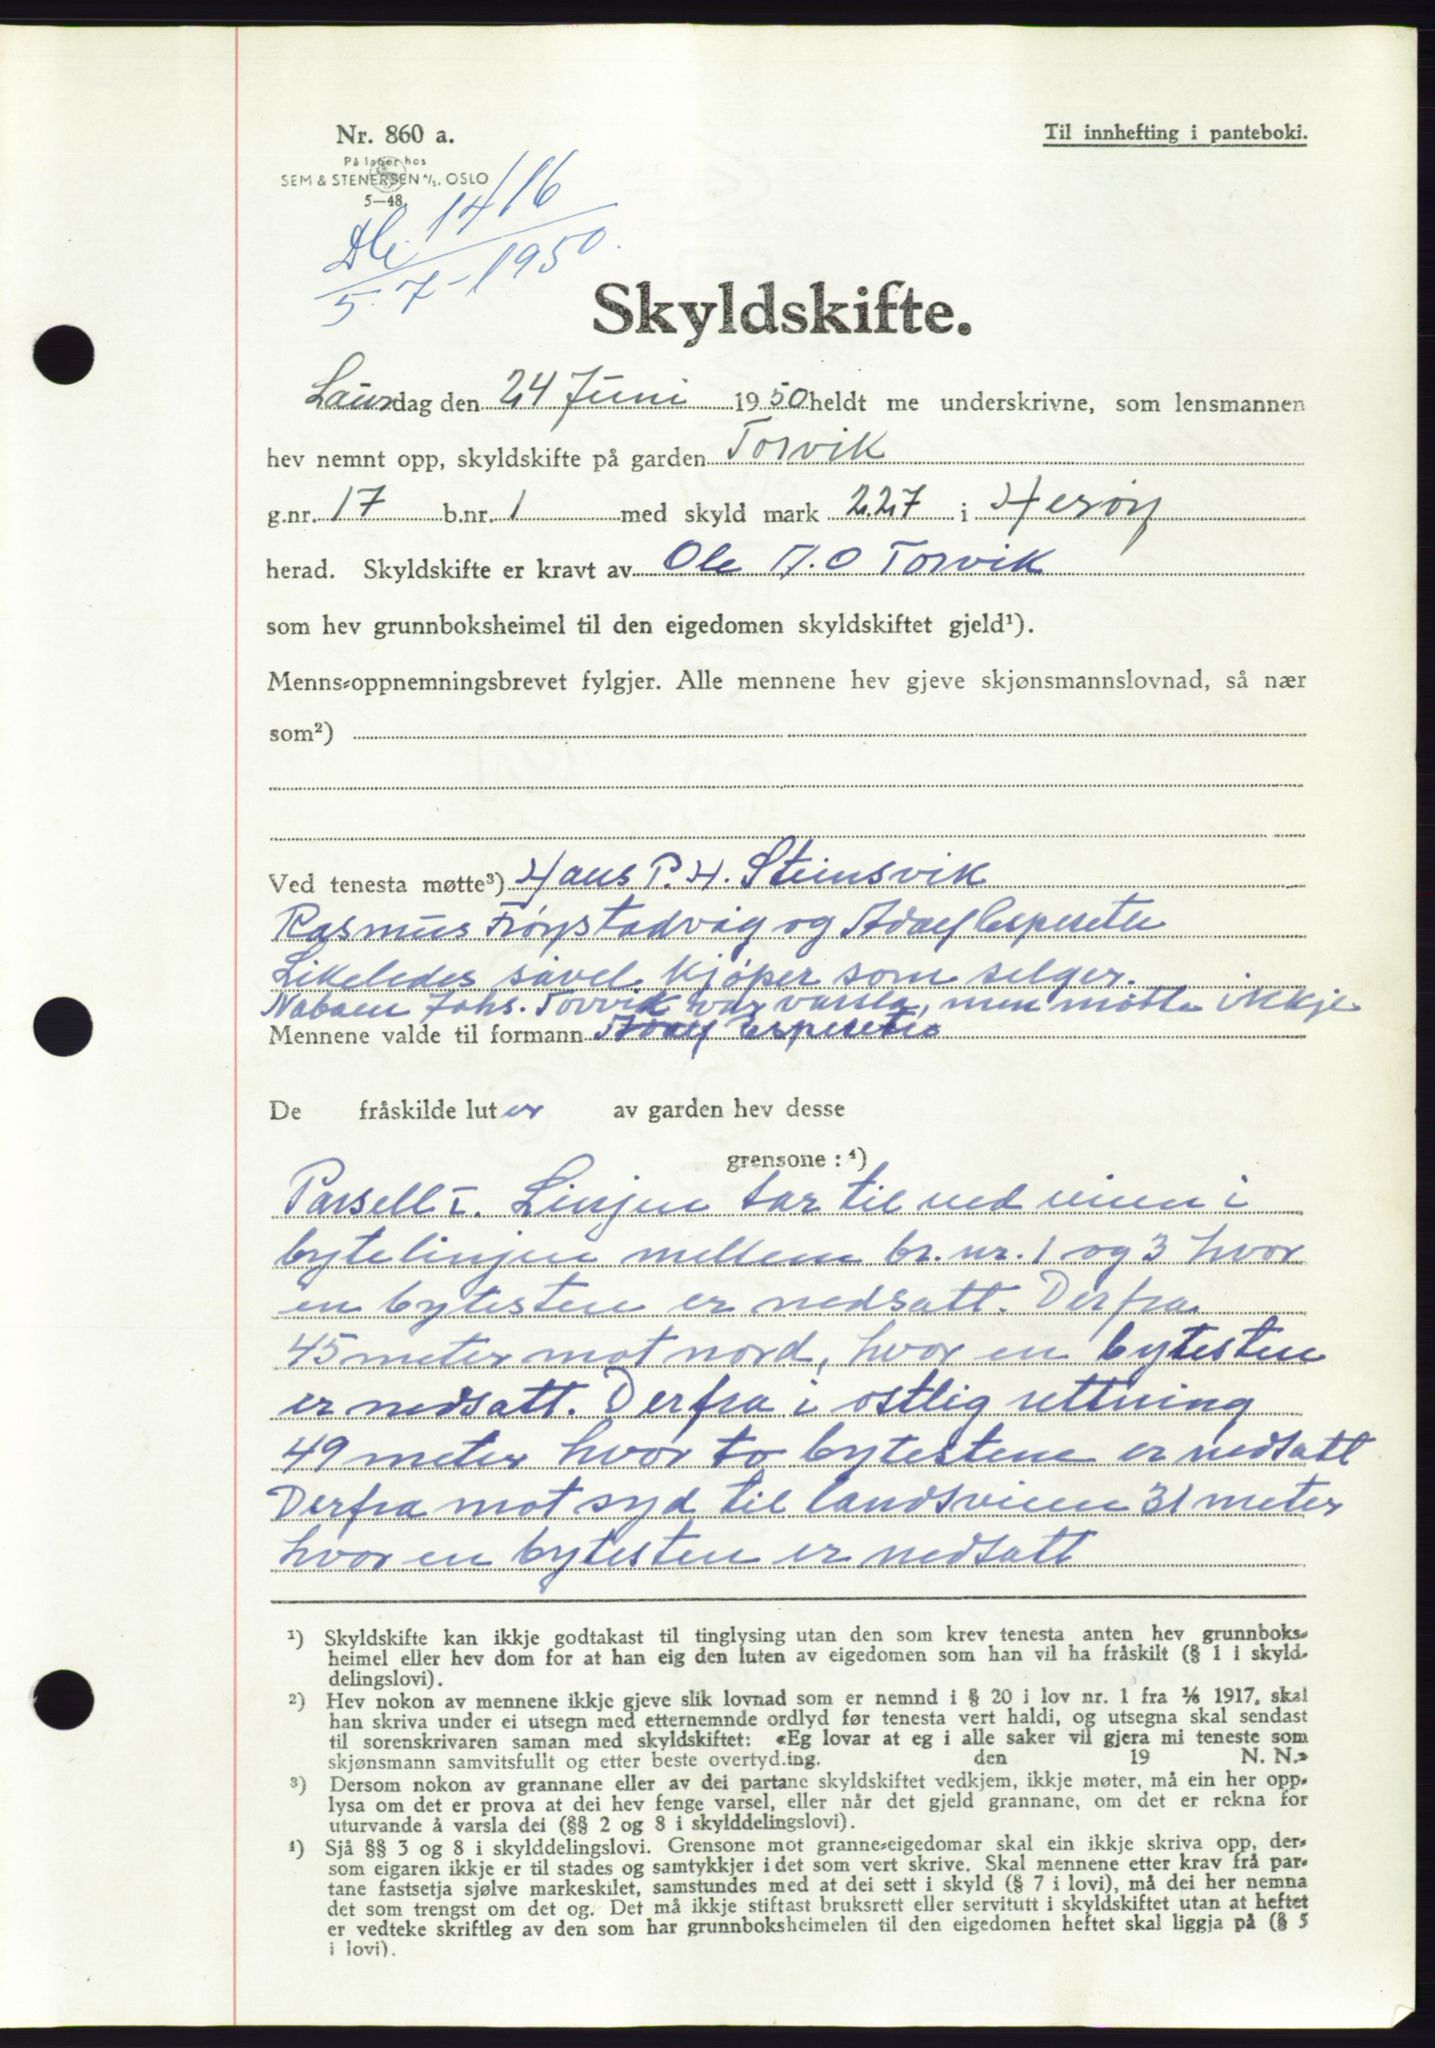 Nr. 860 a.
Til innhefting i panteboki.
På lager hos
SEM & STENERSEN A/S, OSLO
5—48.
1416
5.7-1950.
Skyldskifte.
Laurdag den 24 Juni 1950 heldt me underskrivne, som lensmannen
hev nemnt opp, skyldskifte på garden Torvik
g.nr. 17 b.nr. 1 med skyld mark 2.27 i Herøy
herad. Skyldskifte er kravt av Ole O Torvik
som hev grunnboksheimel til den eigedomen skyldskiftet gjeld¹).
Menns-oppnemningsbrevet fylgjer. Alle mennene hev gjeve skjønsmannslovnad, så nær
som²)
Ved tenesta møtte³) Hans P. H. Steinsvik
Rasmus Frøystadvåg og Adolf Espeseth
Likeledes såvel kjøper som selger.
Naboen Johs. Torvik var varsla, men møtte ikkje
Mennene valde til formann Adolf Espeseth
De fråskilde luter av garden hev desse
grensone : ⁴)
Parsell I. Linjen tar til ved veien i
bytelinjen mellem br. nr. 1 og 3 hvor
en bytesten er nedsatt. Derfra
45 meter mot nord, hvor en bytesten
er nedsatt. Derfra i østlig rettning
49 meter hvor to bytestene er nedsatt
Derfra mot syd til landsveien 31 meter
hvor en bytesten er nedsatt
¹) Skyldskifte kan ikkje godtakast til tinglysing utan den som krev tenesta anten hev grunnboks-
heimel eller hev dom for at han eig den luten av eigedomen som han vil ha fråskilt (§ 1 i skyld-
delingslovi).
²) Hev nokon av mennene ikkje gjeve slik lovnad som er nemnd i § 20 i lov nr. 1 fra 1/6 1917, skal
han skriva under ei utsegn med etternemnde ordlyd før tenesta vert haldi, og utsegna skal sendast
til sorenskrivaren saman med skyldskiftet: «Eg lovar at eg i alle saker vil gjera mi teneste som
skjønsmann samvitsfullt og etter beste overtyd.ing. den 19 N. N.»
³) Dersom nokon av grannane eller av dei partane skyldskiftet vedkjem, ikkje møter, må ein her opp-
lysa om det er prova at dei hev fenge varsel, eller når det gjeld grannane, om det er rekna for
uturvande å varsla dei (§§ 2 og 8 i skylddelingslovi).
⁴) Sjå §§ 3 og 8 i skylddelingslovi. Grensone mot granne-eigedomar skal ein ikkje skriva opp, der-
som eigaren ikkje er til stades og samtykkjer i det som vert skrive. Skal mennene etter krav frå par-
tane fastsetja sjølve markeskilet, samstundes med at dei sett i skyld (§ 7 i lovi), må dei her nemna
det som trengst om det og. Det må ikkje stiftast bruksrett eller servitutt i skyldskiftet utan at heftet
er vedteke skriftleg av den som har grunnboksheimelen til den eigedomen heftet skal liggja på (§ 5
i lovi).